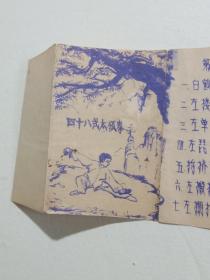 四十八式太极拳
一.白鹤
二.左搂
三.左单
四.左琵
五.捋挤
六.左搬
七.左捌